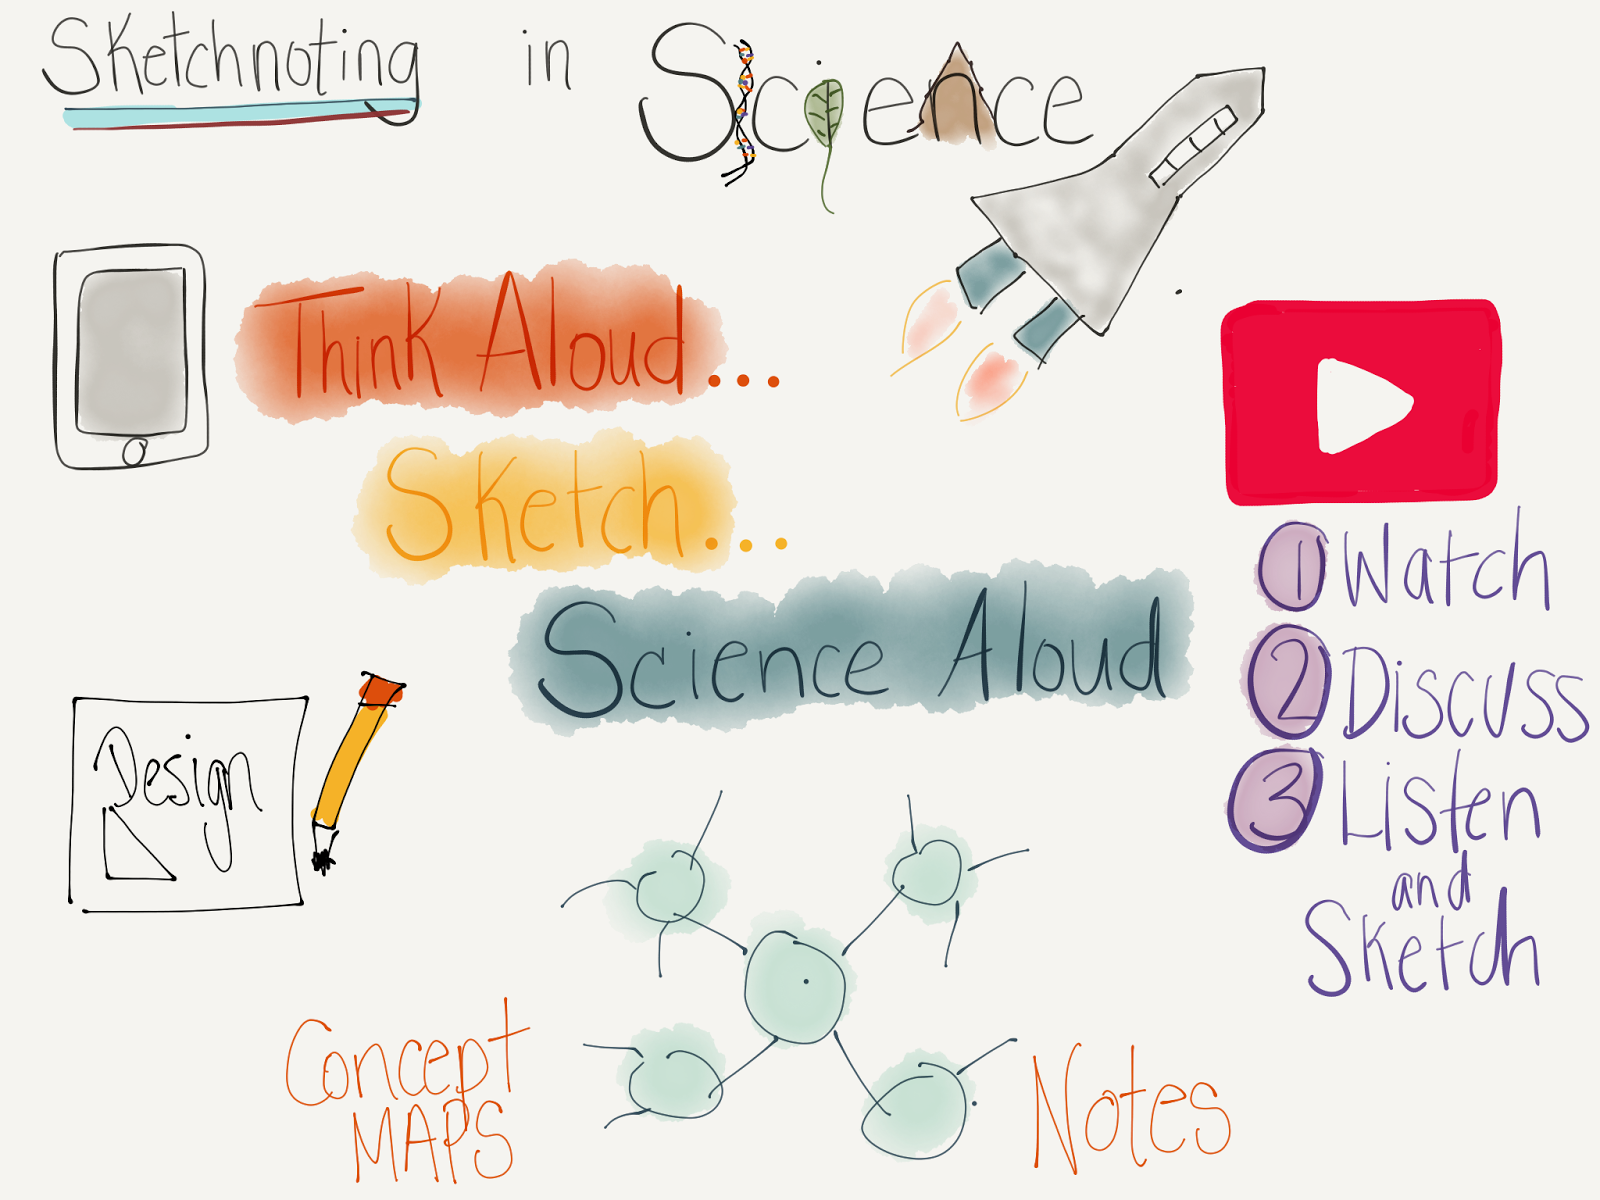 Sketchnoting in Science
Think Aloud...
Sketch...
Science Aloud
1 Watch
2 Discuss
3 Listen
and
Sketch
Design
Concept
MAPS
Notes